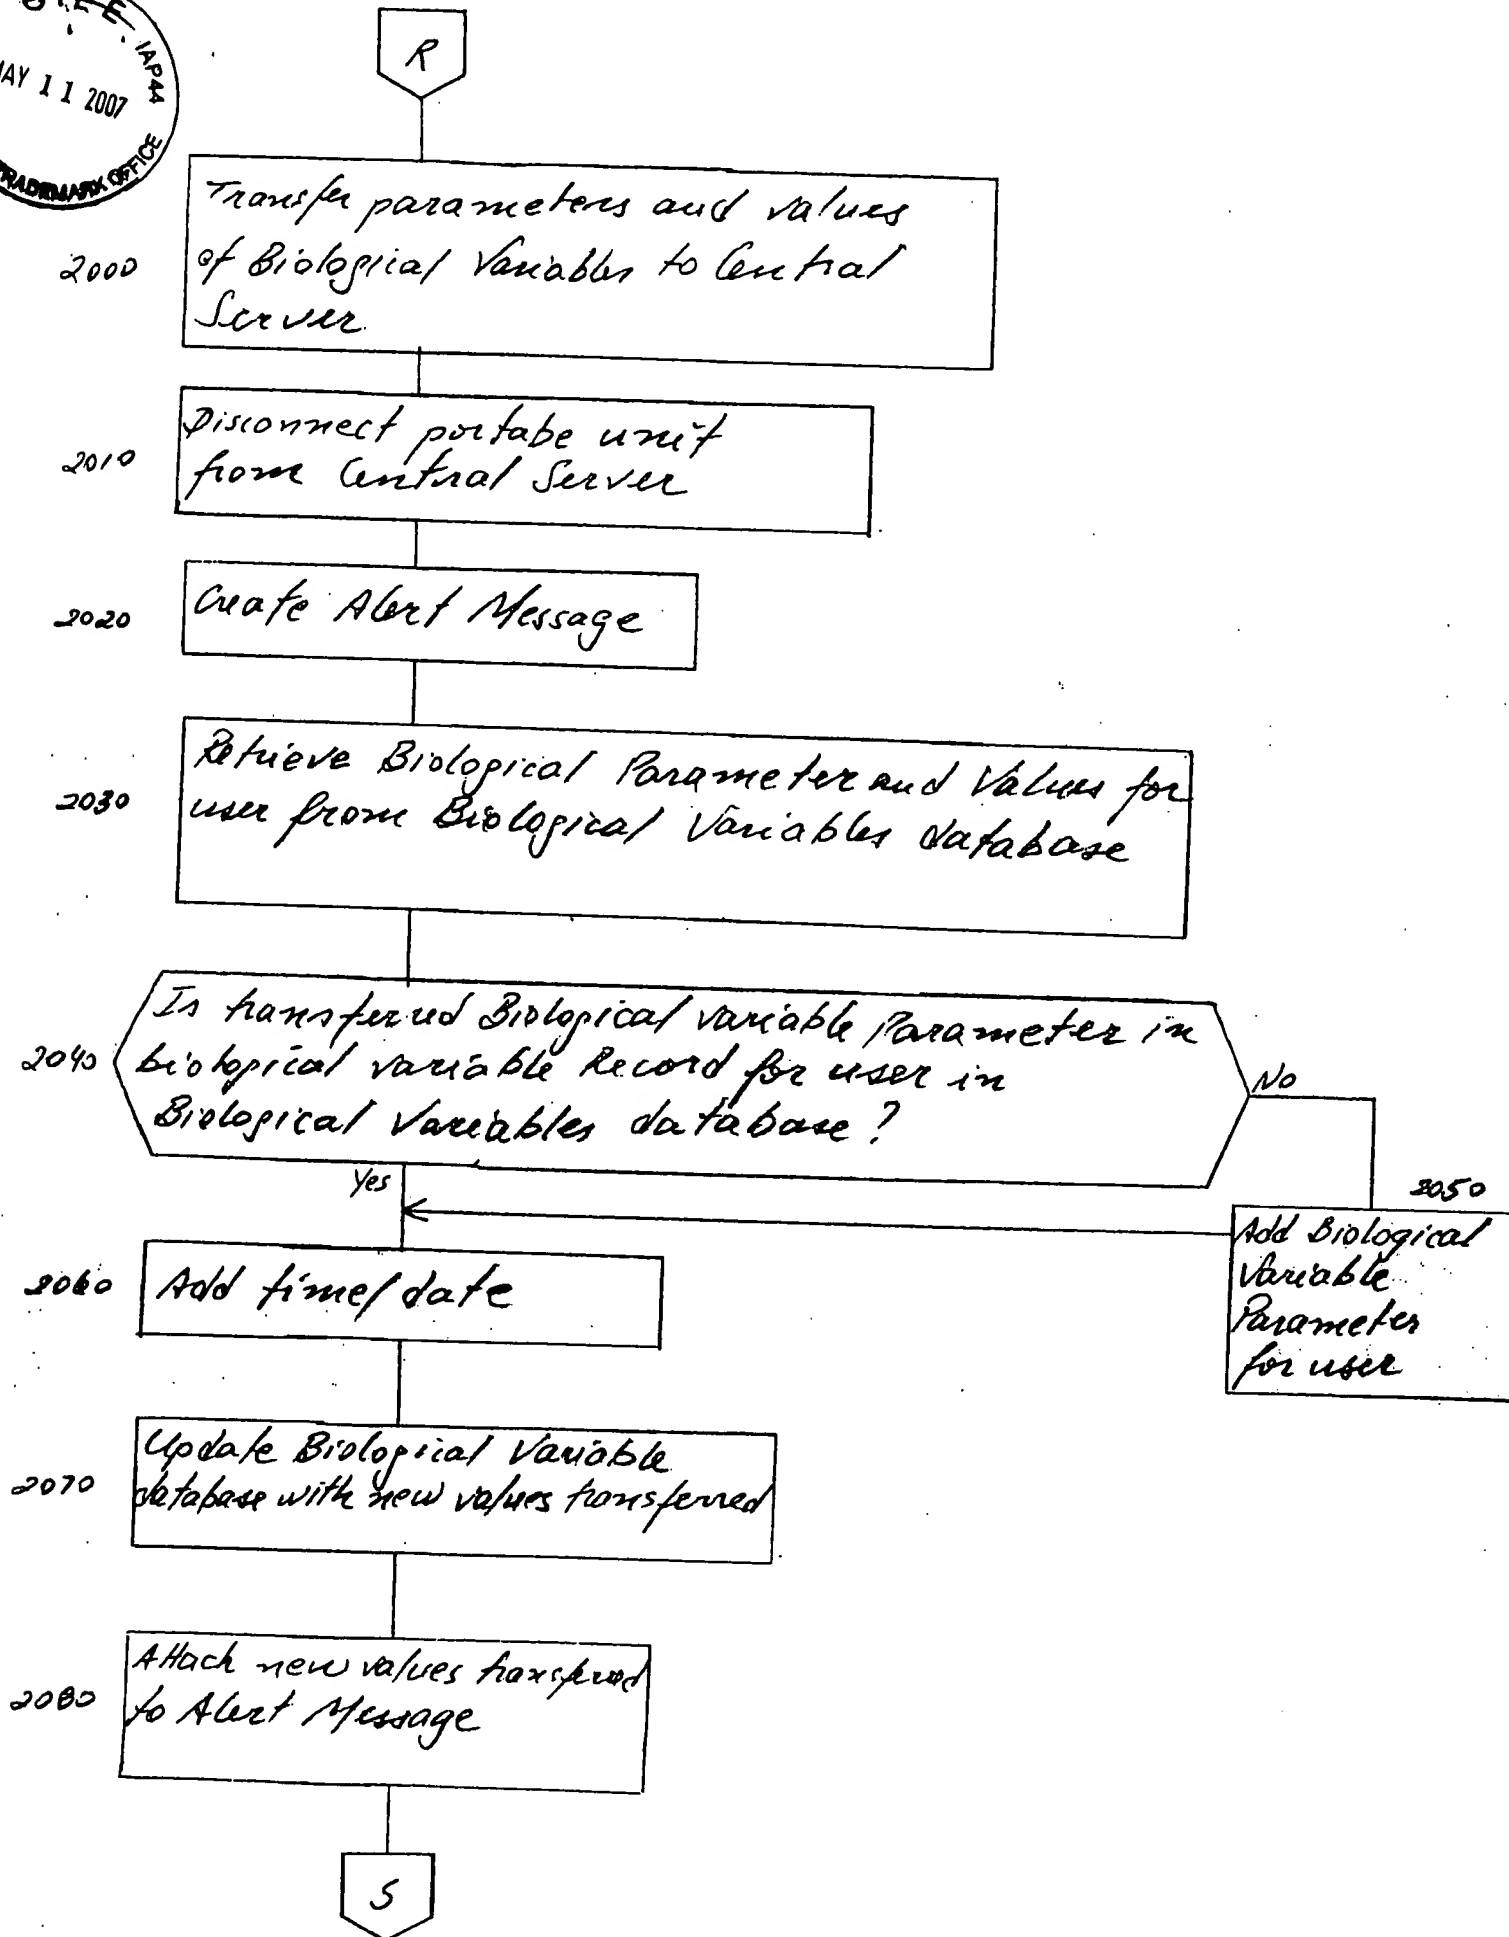 IAP44
MAY 11 2007
TRADEMARK OFFICE
R
2000
Transfer parameters and values
of Biological Variables to Central
Server.
2010
Disconnect portabe unit
from Central Server
2020
Create Alert Message
2030
Retrieve Biological Parameter and Values for
user from Biological Variables database
2040
Is transferred Biological variable Parameter in
biological variable Record for user in
Biological Variables database?
No
Yes
2050
Add Biological
Variable
Parameter
for user
2060
Add time/date
2070
Update Biological Variable
database with new values transferred
2080
Attach new values transferred
to Alert Message
S